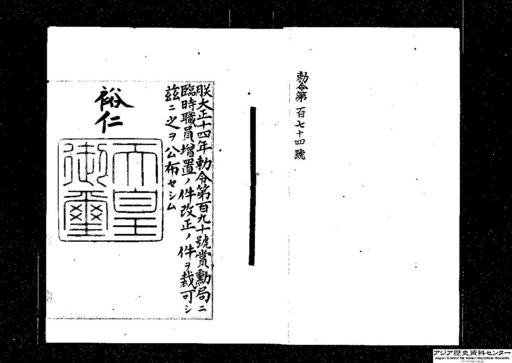 勅令第百七十四號
朕大正十四年勅令第百九十號賞勲局ニ
臨時職員増置ノ件改正ノ件ヲ裁可シ
茲ニ之ヲ公布セシム
裕仁
天皇
御璽
アジア歴史資料センター
Japan Center for Asian Historical Records